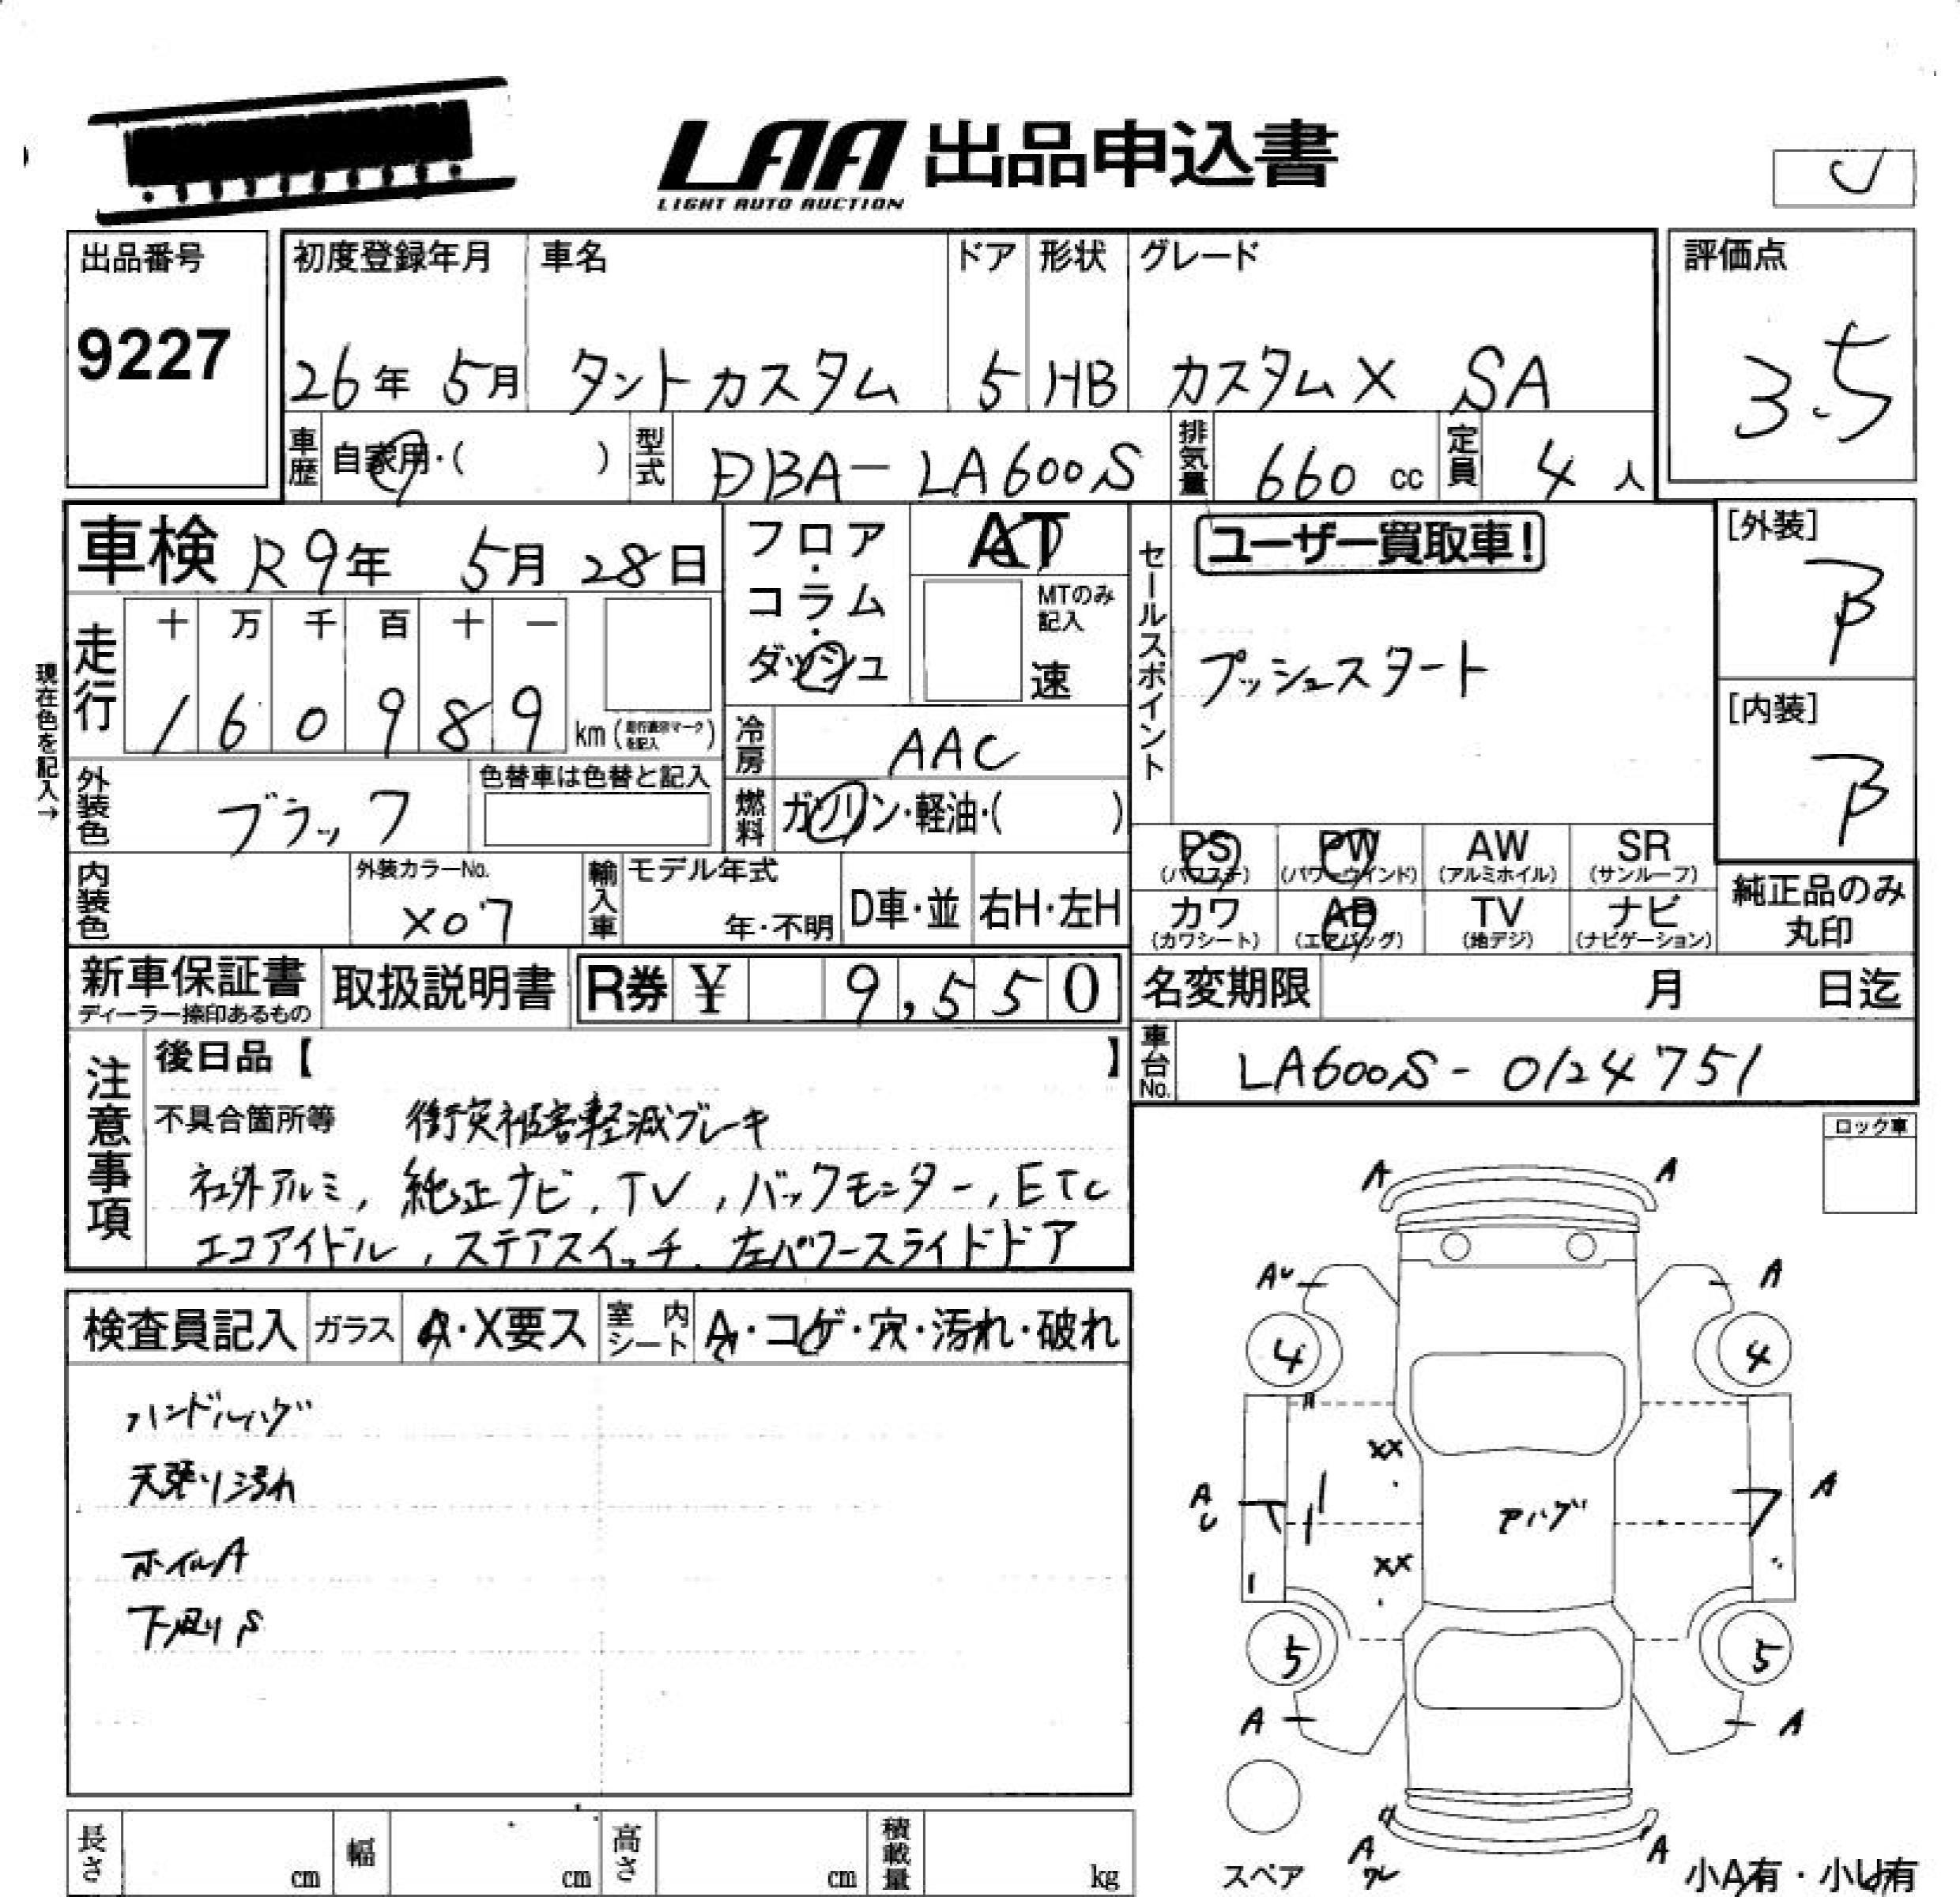 LAA 出品申込書
LIGHT AUTO AUCTION
出品番号
9227
初度登録年月 車名 ドア 形状 グレード
26年 5月 タントカスタム 5 HB カスタムX SA
評価点
3.5
車歴 自家用・( ) 型式 DBA-LA600S 排気量 660 cc 定員 4 人
車検 R9年 5月 28日
フロア・コラム・ダッシュ
AT
MTのみ記入
速
セールスポイント
ユーザー買取車!
プッシュスタート
[外装]
B
[内装]
B
現在色を記入→
走行 十 万 千 百 十 一
1 6 0 9 8 9 km(走行直示マークを記入)
冷房 AAC
外装色 ブラック 色替車は色替と記入
燃料 ガソリン・軽油・( )
PS (パワステ) PW (パワーウインド) AW (アルミホイル) SR (サンルーフ)
カワ (カワシート) AB (エアバッグ) TV (地デジ) ナビ (ナビゲーション)
純正品のみ丸印
内装色 外装カラーNo. X07 輸入車 モデル年式 年・不明 D車・並 右H・左H
新車保証書 ディーラー捺印あるもの 取扱説明書 R券 ¥ 9,550
名変期限 月 日迄
車台No. LA600S-0124751
注意事項
後日品【 】
不具合箇所等 衝突被害軽減ブレーキ
社外アルミ, 純正ナビ, TV, バックモニター, ETC
エコアイドル, ステアスイッチ, 左パワースライドドア
ロック車
検査員記入 ガラス A・X要ス 室内シート A・コゲ・穴・汚れ・破れ
ハンドルハゲ
天張り汚れ
ホイルA
下廻りS
A A
AU A
4 4
A
XX
AU A
XX
5 5
A A
A A
スペア
小A有・小U有
長さ cm 幅 cm 高さ cm 積載量 kg